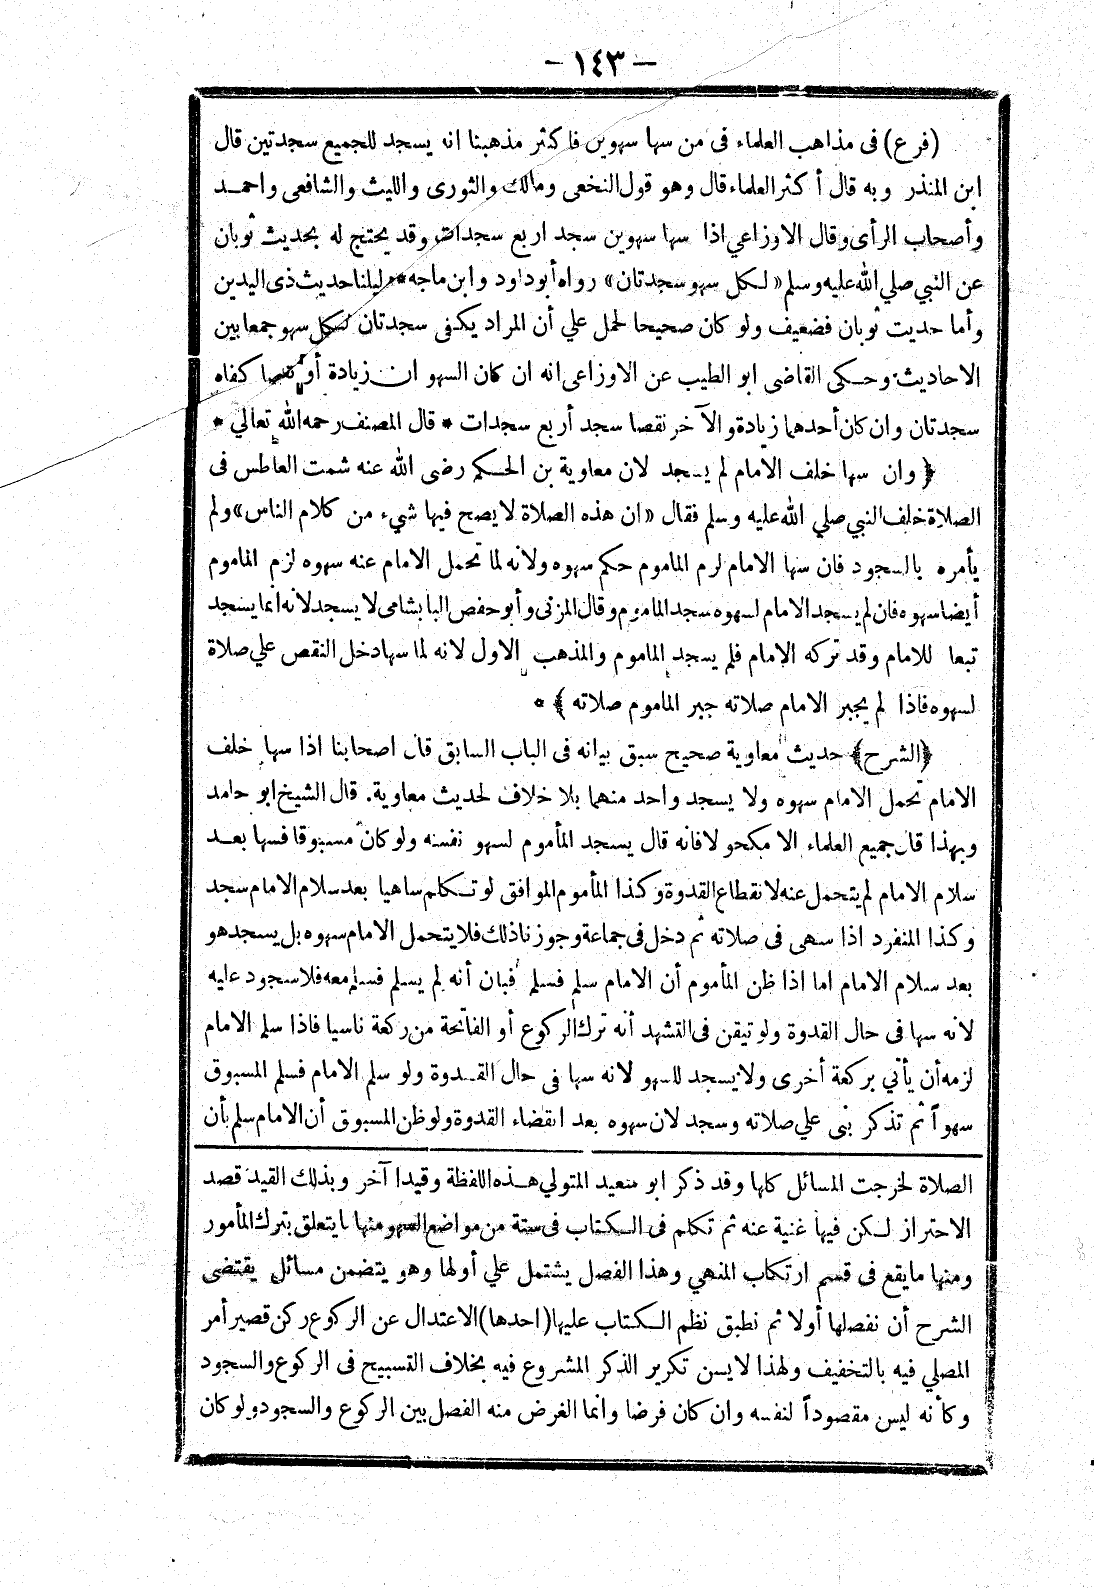 – ١٤٣ –
(فرع) فى مذاهب العلماء فى من سها سهوين فاكثر مذهبنا انه يسجد للجميع سجدتين قال
ابن المنذر وبه قال أكثر العلماء قال وهو قول النخعى ومالك والثورى والليث والشافعى واحمد
وأصحاب الرأى وقال الاوزاعي اذا سها سهوين سجد اربع سجدات وقد يحتج له بحديث ثوبان
عن النبي صلي الله عليه وسلم «لكل سهو سجدتان» رواه أبو داود وابن ماجه * دليلنا حديث ذى اليدين
وأما حديث ثوبان فضعيف ولو كان صحيحا لحمل علي أن المراد يكفى سجدتان لكل سهو جمعا بين
الاحاديث وحكى القاضى ابو الطيب عن الاوزاعى انه ان كان السهو ان زيادة أو نقصا كفاه
سجدتان وان كان أحدهما زيادة والآخر نقصا سجد أربع سجدات * قال المصنف رحمه الله تعالي *
﴿وان سها خلف الامام لم يسجد لان معاوية بن الحكم رضى الله عنه شمت العاطس فى
الصلاة خلف النبي صلي الله عليه وسلم فقال «ان هذه الصلاة لا يصح فيها شيء من كلام الناس» ولم
يأمره بالسجود فان سها الامام لرم الماموم حكم سهوه ولانه لما تحمل الامام عنه سهوه لزم الماموم
أيضا سهوه فان لم يسجد الامام لسهوه سجد الماموم وقال المزنى وأبو حفص البابشامى لا يسجد لانه انما يسجد
تبعا للامام وقد تركه الامام فلم يسجد الماموم والمذهب الاول لانه لما سها دخل النقص علي صلاة
لسهوه فاذا لم يجبر الامام صلاته جبر الماموم صلاته﴾ *
﴿الشرح﴾ حديث معاوية صحيح سبق بيانه فى الباب السابق قال اصحابنا اذا سها خلف
الامام تحمل الامام سهوه ولا يسجد واحد منهما بلا خلاف لحديث معاوية. قال الشيخ ابو حامد
وبهذا قال جميع العلماء الا مكحولا فانه قال يسجد المأموم لسهو نفسه ولو كان مسبوقا فسها بعد
سلام الامام لم يتحمل عنه لانقطاع القدوة وكذا المأموم الموافق لو تكلم ساهيا بعد سلام الامام سجد
وكذا المنفرد اذا سهى فى صلاته ثم دخل فى جماعة وجوزنا ذلك فلا يتحمل الامام سهوه بل يسجد هو
بعد سلام الامام اما اذا ظن المأموم أن الامام سلم فسلم فبان أنه لم يسلم فسلم معه فلا سجود عليه
لانه سها فى حال القدوة ولو تيقن فى التشهد أنه ترك الركوع أو الفاتحة من ركعة ناسيا فاذا سلم الامام
لزمه أن يأتي بركعة أخرى ولا يسجد للسهو لانه سها فى حال القدوة ولو سلم الامام فسلم المسبوق
سهواً ثم تذكر بنى علي صلاته وسجد لان سهوه بعد انقضاء القدوة ولو ظن المسبوق أن الامام سلم بأن
الصلاة لخرجت المسائل كلها وقد ذكر ابو سعيد المتولي هذه اللفظة وقيدا آخر وبذلك القيد قصد
الاحتراز لكن فيها غنية عنه ثم تكلم فى الكتاب فى ستة من مواضع السهو منها ما يتعلق بترك المأمور
ومنها ما يقع فى قسم ارتكاب المنهي وهذا الفصل يشتمل علي أولها وهو يتضمن مسائل يقتضى
الشرح أن نفصلها أولا ثم نطبق نظم الكتاب عليها (احدها) الاعتدال عن الركوع ركن قصير أمر
المصلي فيه بالتخفيف ولهذا لا يسن تكرير الذكر المشروع فيه بخلاف التسبيح فى الركوع والسجود
وكأنه ليس مقصوداً لنفسه وان كان فرضا وانما الغرض منه الفصل بين الركوع والسجود ولو كان